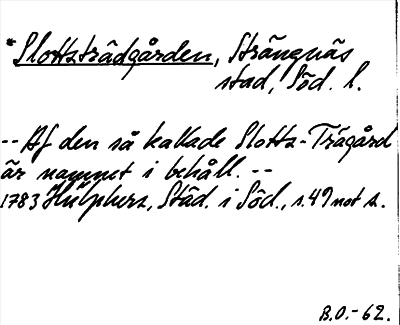 *Slottsträdgården, Strängnäs
stad, Söd. l.
-- Af den så kallade Slotts-Trägård
är namnet i behåll. --
1783 Hülphers, Städ. i Söd., s. 49 not s.
B.O.-62.